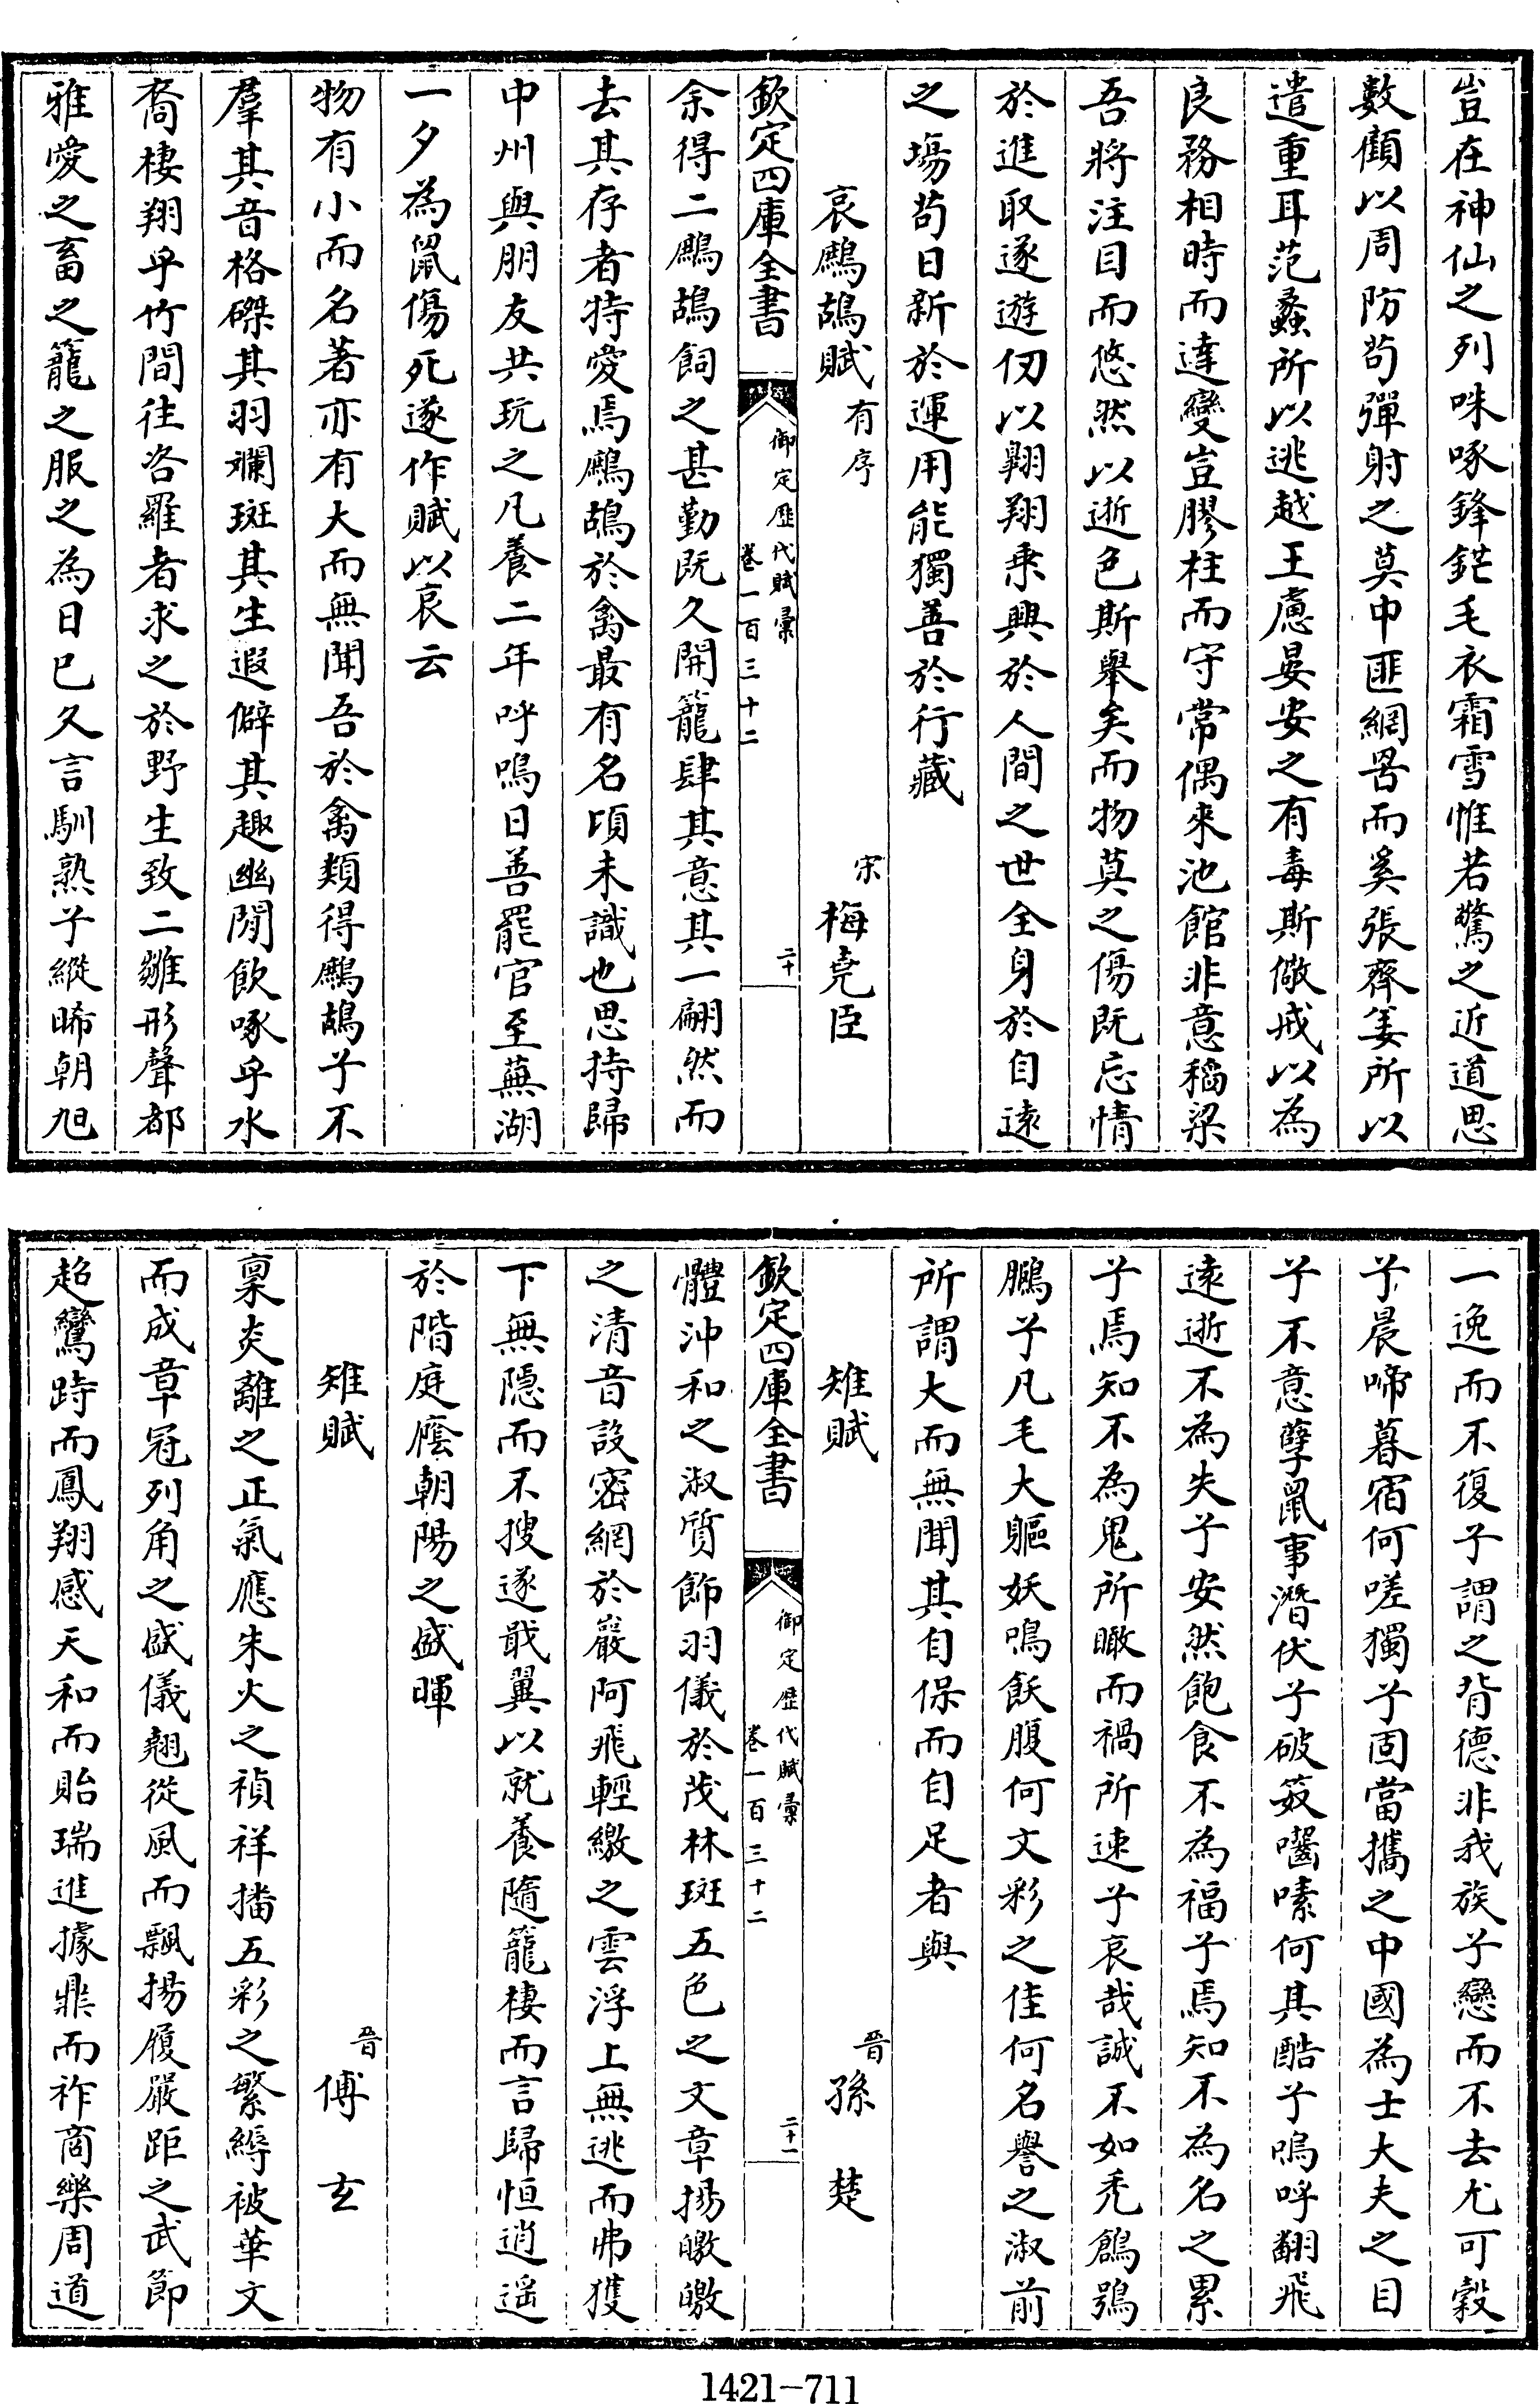 豈在神仙之列咮啄鋒鋩毛衣霜雪惟若驚之近道思
數顧以周防茍彈射之莫中匪網罟而奚張齊姜所以
遣重耳范蠡所以逃越王慮晏安之有毒斯儆戒以為
良務相時而達變豈膠柱而守常偶來池館非意稻粱
吾將注目而悠然以逝色斯舉矣而物莫之傷既忘情
於進取遂遊仞以翱翔乘興於人間之世全身於自逺
之場茍日新於運用能獨善於行藏
哀鷓鴣賦有序 宋 梅堯臣
欽定四庫全書 御定歴代賦彙 卷一百三十二 二十
余得二鷓鴣飼之甚勤既久開籠肆其意其一翩然而
去其存者特愛焉鷓鴣於禽最有名頃未識也思持歸
中州與朋友共玩之凡養二年呼鳴日善罷官至蕪湖
一夕為鼠傷死遂作賦以哀云
物有小而名著亦有大而無聞吾於禽類得鷓鴣兮不
羣其音格磔其羽斕斑其生遐僻其趣幽閒飲啄乎水
裔棲翔乎竹間往咨羅者求之於野生致二雛形聲都
雅愛之畜之籠之服之為日已久言馴熟兮縱晞朝旭
一逸而不復兮謂之背德非我族兮戀而不去尤可穀
兮晨啼暮宿何嗟獨兮固當攜之中國為士大夫之目
兮不意孽鼠事潛伏兮破笯囓嗉何其酷兮嗚呼翻飛
逺逝不為失兮安然飽食不為福兮焉知不為名之累
兮焉知不為鬼所瞰而禍所速兮哀哉誠不如禿鶬鴞
鵬兮凡毛大軀妖鳴飫腹何文彩之佳何名譽之淑前
所謂大而無聞其自保而自足者與
雉賦 晉 孫楚
欽定四庫全書 御定歴代賦彙 卷一百三十二 二十一
體沖和之淑質飾羽儀於茂林斑五色之文章揚皦皦
之清音設密網於巖阿飛輕繳之雲浮上無逃而弗獲
下無隱而不搜遂戢翼以就養隨籠棲而言歸恒逍遥
於階庭廕朝陽之盛暉
雉賦 晉 傅玄
稟炎離之正氣應朱火之禎祥播五彩之繁縟被華文
而成章冠列角之盛儀翹從風而飄揚履嚴距之武節
超鸞跱而鳳翔感天和而貽瑞進據鼎而祚商樂周道
1421-711